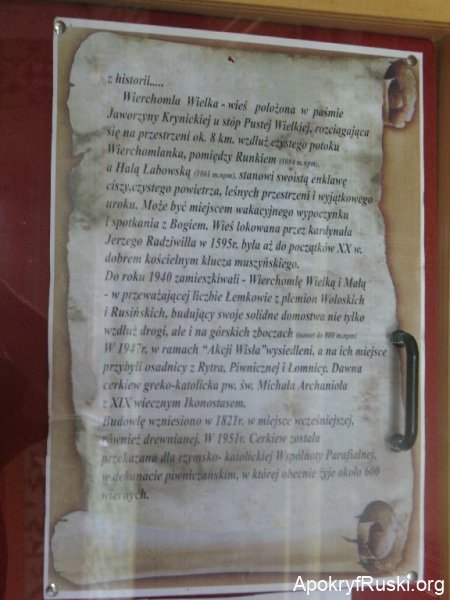 z historii.....
Wierchomla Wielka - wieś położona w paśmie
Jaworzyny Krynickiej u stóp Pustej Wielkiej, rozciągająca
się na przestrzeni ok. 8 km. wzdłuż czystego potoku
Wierchomlanka, pomiędzy Runkiem (1084 m.npm),
a Halą Łabowską (1061 m.npm), stanowi swoistą enklawę
ciszy,czystego powietrza, leśnych przestrzeni i wyjątkowego
uroku. Może być miejscem wakacyjnego wypoczynku
i spotkania z Bogiem. Wieś lokowana przez kardynała
Jerzego Radziwilla w 1595r. była aż do początków XX w.
dobrem kościelnym klucza muszyńskiego.
Do roku 1940 zamieszkiwali - Wierchomlę Wielką i Małą
- w przeważającej liczbie Łemkowie z plemion Wołoskich
i Rusińskich, budujący swoje solidne domostwa nie tylko
wzdłuż drogi, ale i na górskich zboczach (nawet do 800 m.npm)
W 1947r. w ramach “Akcji Wisła”wysiedleni, a na ich miejsce
przybyli osadnicy z Rytra, Piwnicznej i Łomnicy. Dawna
cerkiew greko-katolicka pw. św. Michała Archanioła
z XIX wiecznym Ikonostasem.
Budowlę wzniesiono w 1821r. w miejsce wcześniejszej,
również drewnianej. W 1951r. Cerkiew została
przekazana dla rzymsko- katolickiej Wspólnoty Parafialnej,
w dekanacie piwniczańskim, w której obecnie żyje około 600
wiernych.
ApokryfRuski.org